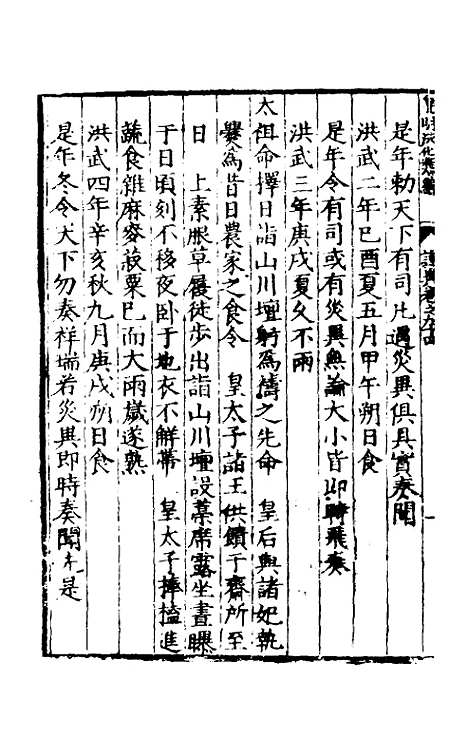 是年勅天下有司凡遇災異俱具實奏聞
洪武二年已酉夏五月甲午朔日食
是年令有司或有災異無論大小皆卽時飛奏
洪武三年庚戌夏久不雨
太祖命擇日詣山川壇躬爲禱之先命　皇后與諸妃執
爨爲昔日農家之食令　皇太子諸王供饋于齋所至
日　上素服草屨徒步出詣山川壇設藁席露坐晝曝
于日頃刻不移夜卧于地衣不解帶　皇太子捧榼進
蔬食雜麻麥菽粟已而大雨歲遂熟
洪武四年辛亥秋九月庚戌朔日食
是年冬令天下勿奏祥瑞若災異即時奏聞先是